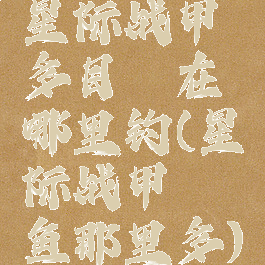 星际战甲
多目 在
哪里钓(星
际战甲
鱼那里多)